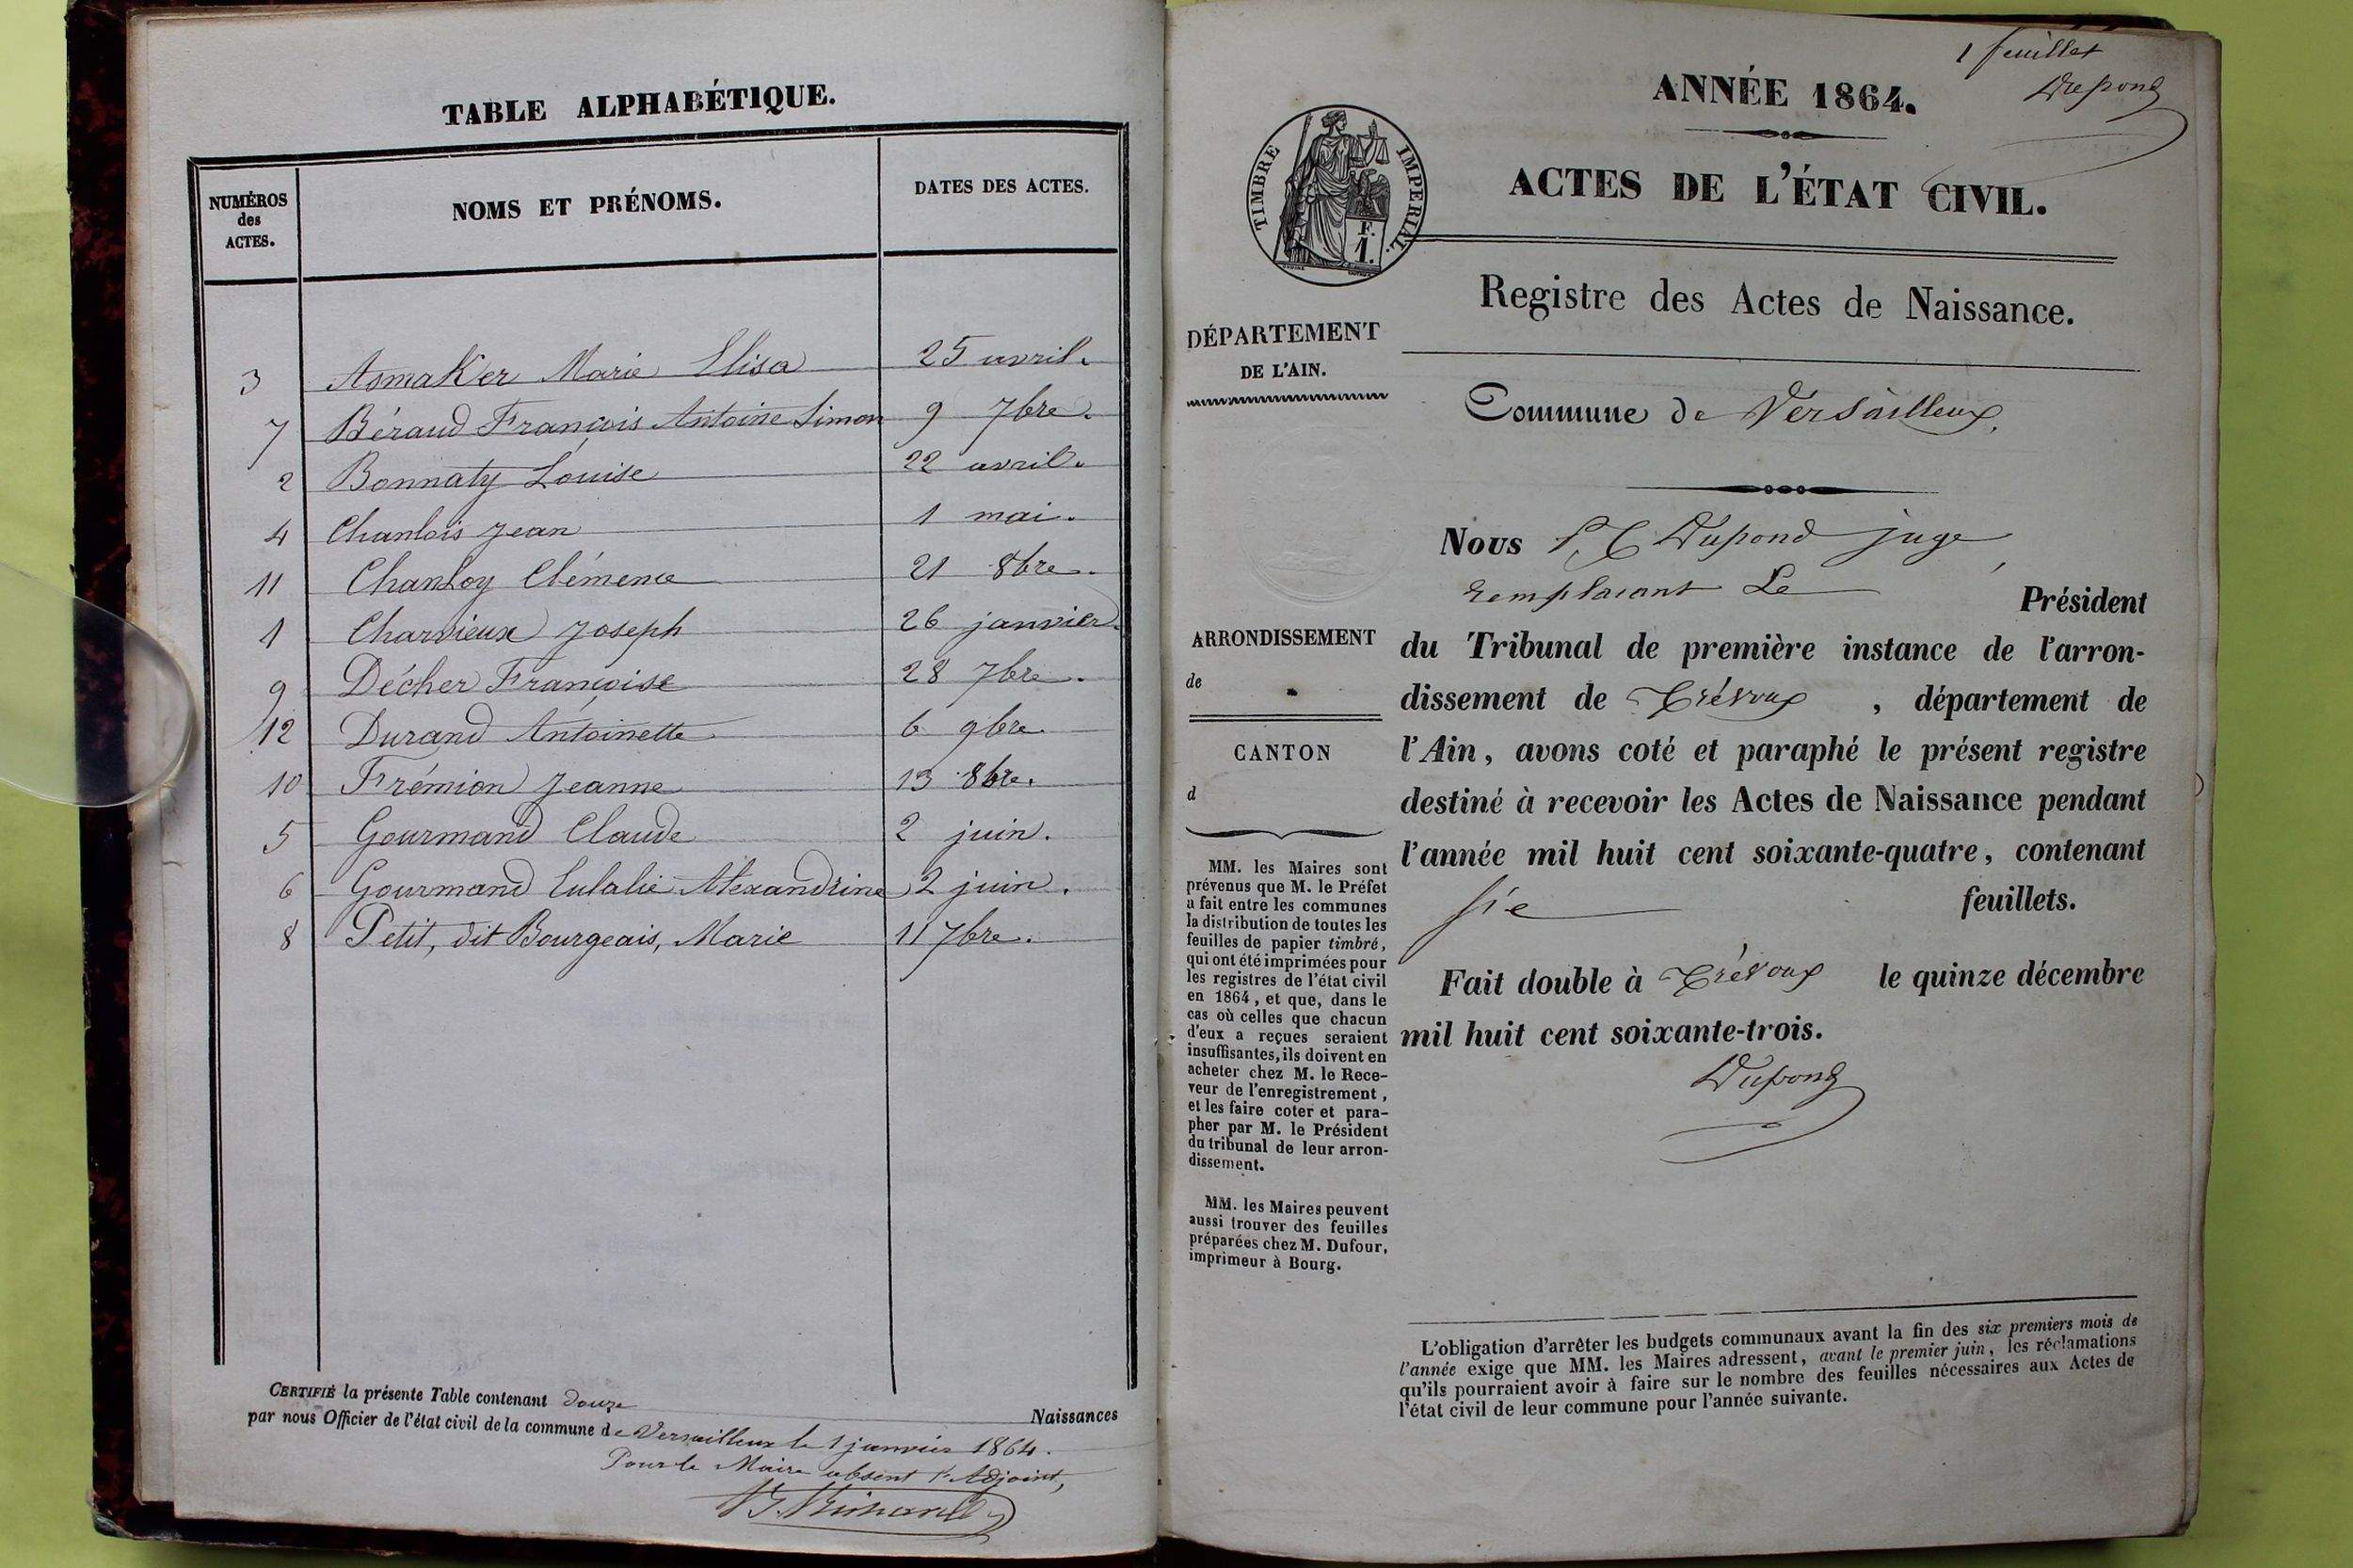 TABLE ALPHABÉTIQUE.
NUMÉROS
des
ACTES.
NOMS ET PRÉNOMS.
DATES DES ACTES.
3 Asmaker Marie Elisa 25 avril.
7 Béraud François Antoine Simon 9 7bre.
2 Bonnaty Louise 22 avril.
4 Chanlois Jean 1 mai.
11 Chanloy Clémence 21 8bre.
1 Charvieux Joseph 26 janvier.
9 Décher Françoise 28 7bre.
12 Durand Antoinette 6 9bre.
10 Frémion Jeanne 13 8bre.
5 Gourmand Claude 2 juin.
6 Gourmand Eulalie Alexandrine 2 juin.
8 Petit, dit Bourgeais, Marie 11 7bre.
CERTIFIÉ la présente Table contenant douze
Naissances
par nous Officier de l'état civil de la commune de Versailleux le 1 janvier 1864.
Pour le Maire absent l'Adjoint,
1 feuillet
Dupond
ANNÉE 1864.
TIMBRE IMPERIAL.
F.
1.
ACTES DE L'ÉTAT CIVIL.
Registre des Actes de Naissance.
DÉPARTEMENT
DE L'AIN.
Commune de Versailleux.
Nous Dupond juge
remplacant Le Président
ARRONDISSEMENT
de
CANTON
d
du Tribunal de première instance de l'arron-
dissement de Trévoux, département de
l'Ain, avons coté et paraphé le présent registre
destiné à recevoir les Actes de Naissance pendant
l'année mil huit cent soixante-quatre, contenant
feuillets.
Fait double à Trévoux le quinze décembre
mil huit cent soixante-trois.
Dupond
MM. les Maires sont
prévenus que M. le Préfet
a fait entre les communes
la distribution de toutes les
feuilles de papier timbré,
qui ont été imprimées pour
les registres de l'état civil
en 1864, et que, dans le
cas où celles que chacun
d'eux a reçues seraient
insuffisantes, ils doivent en
acheter chez M. le Rece-
veur de l'enregistrement,
et les faire coter et para-
pher par M. le Président
du tribunal de leur arron-
dissement.
MM. les Maires peuvent
aussi trouver des feuilles
préparées chez M. Dufour,
imprimeur à Bourg.
L'obligation d'arrêter les budgets communaux avant la fin des six premiers mois de
l'année exige que MM. les Maires adressent, avant le premier juin, les réclamations
qu'ils pourraient avoir à faire sur le nombre des feuilles nécessaires aux Actes de
l'état civil de leur commune pour l'année suivante.